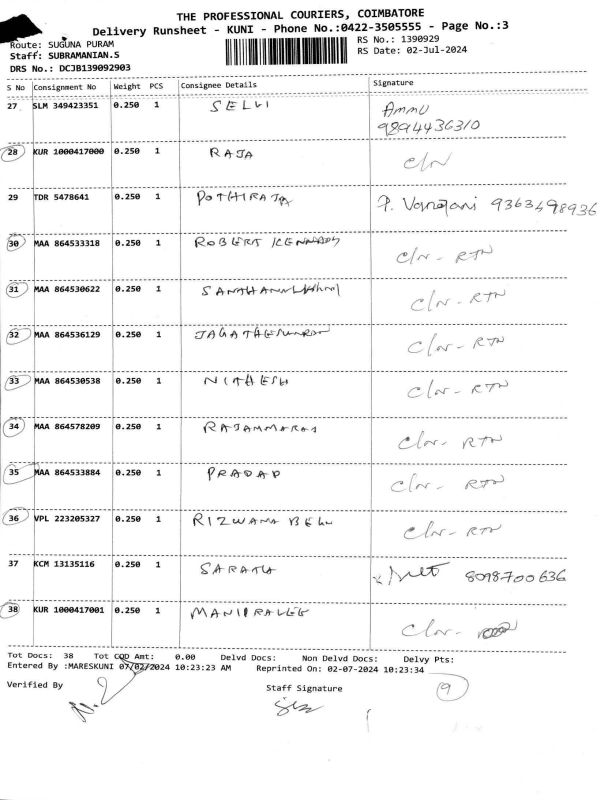 THE PROFESSIONAL COURIERS, COIMBATORE
Delivery Runsheet - KUNI - Phone No.:0422-3505555 - Page No.:3
Route: SUGUNA PURAM
RS No.: 1390929
Staff: SUBRAMANIAN.S
RS Date: 02-Jul-2024
DRS No.: DCJB139092903
S No Consignment No Weight PCS Consignee Details Signature
27 SLM 349423351 0.250 1 SELVI Ammu
9894436310
28 KUR 1000417000 0.250 1 RAJA C/N
29 TDR 5478641 0.250 1 POTHIRAJA P. Vanajani 9363498936
30 MAA 864533318 0.250 1 ROBERT KENNADY C/N - RTN
31 MAA 864530622 0.250 1 C/N - RTN
32 MAA 864536129 0.250 1 C/N - RTN
33 MAA 864530538 0.250 1 NITHESH C/N - RTN
34 MAA 864578209 0.250 1 C/N - RTN
35 MAA 864533884 0.250 1 PRADAP C/N - RTN
36 VPL 223205327 0.250 1 RIZWANA C/N - RTN
37 KCM 13135116 0.250 1 SARATH 8098700636
38 KUR 1000417001 0.250 1 C/N -
Tot Docs: 38 Tot COD Amt: 0.00 Delvd Docs: Non Delvd Docs: Delvy Pts:
Entered By :MARESKUNI 07/02/2024 10:23:23 AM Reprinted On: 02-07-2024 10:23:34
Verified By
Staff Signature
9